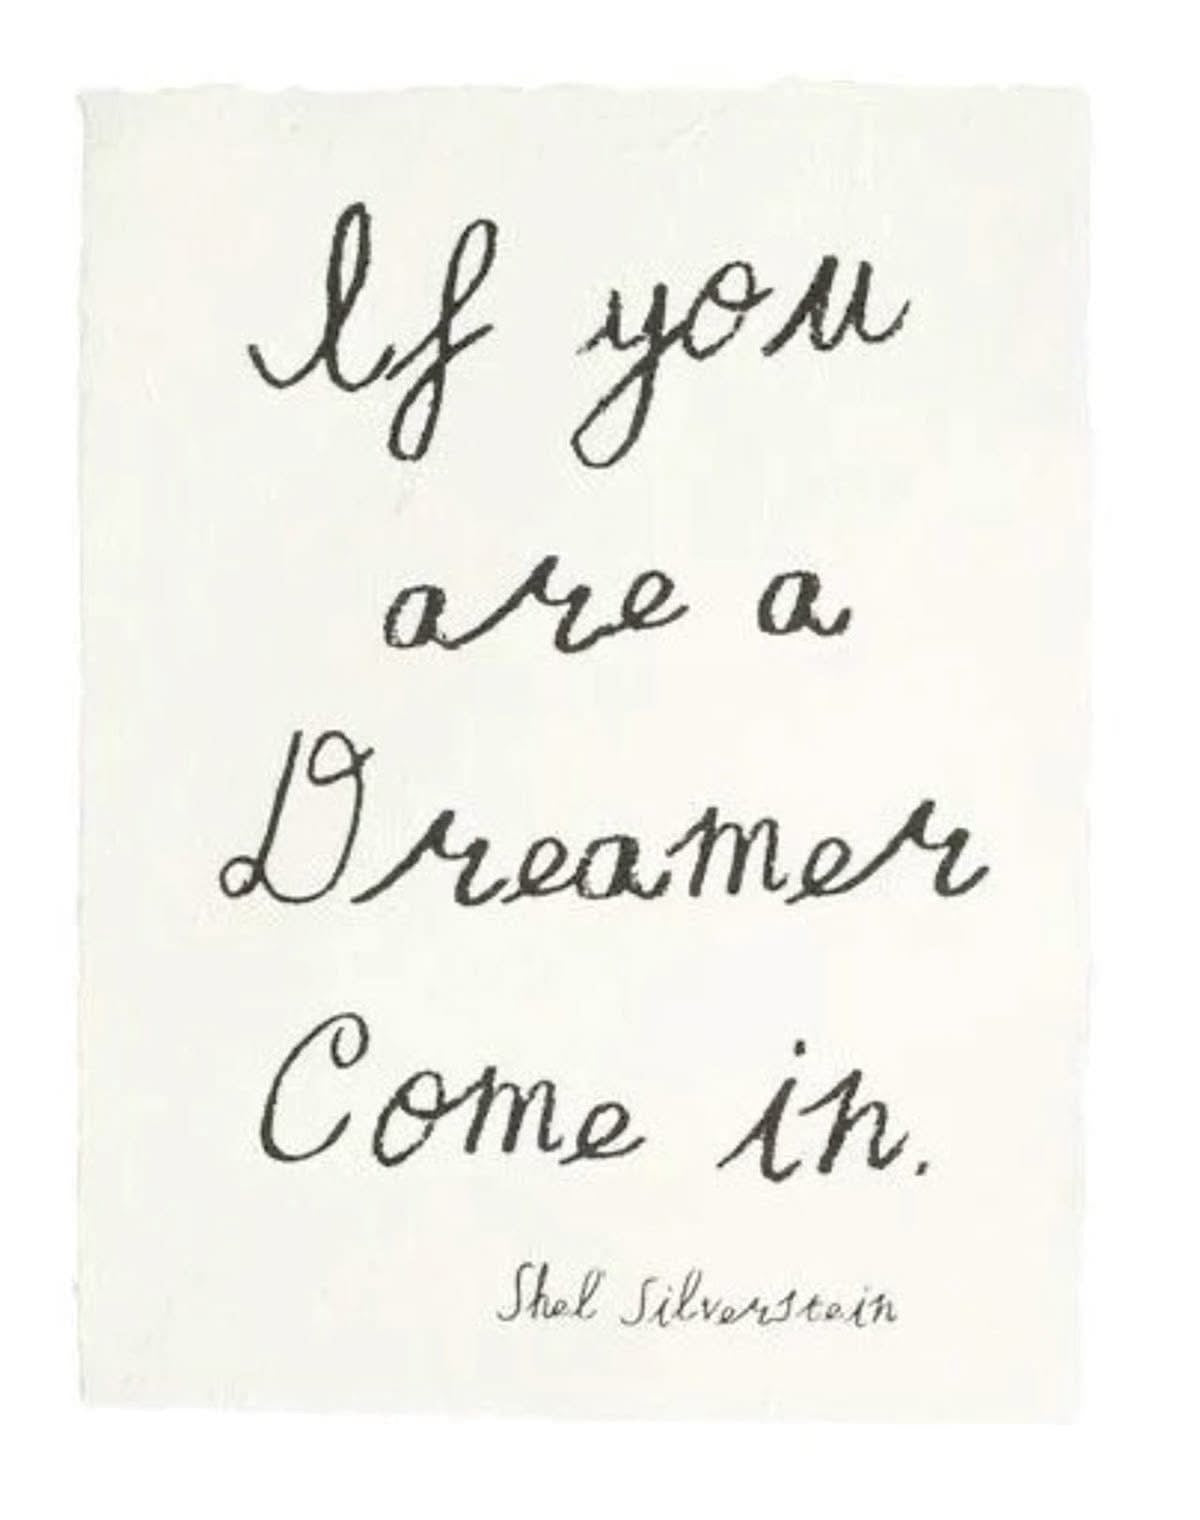 If you
are a
Dreamer
Come in.
Shel Silverstein